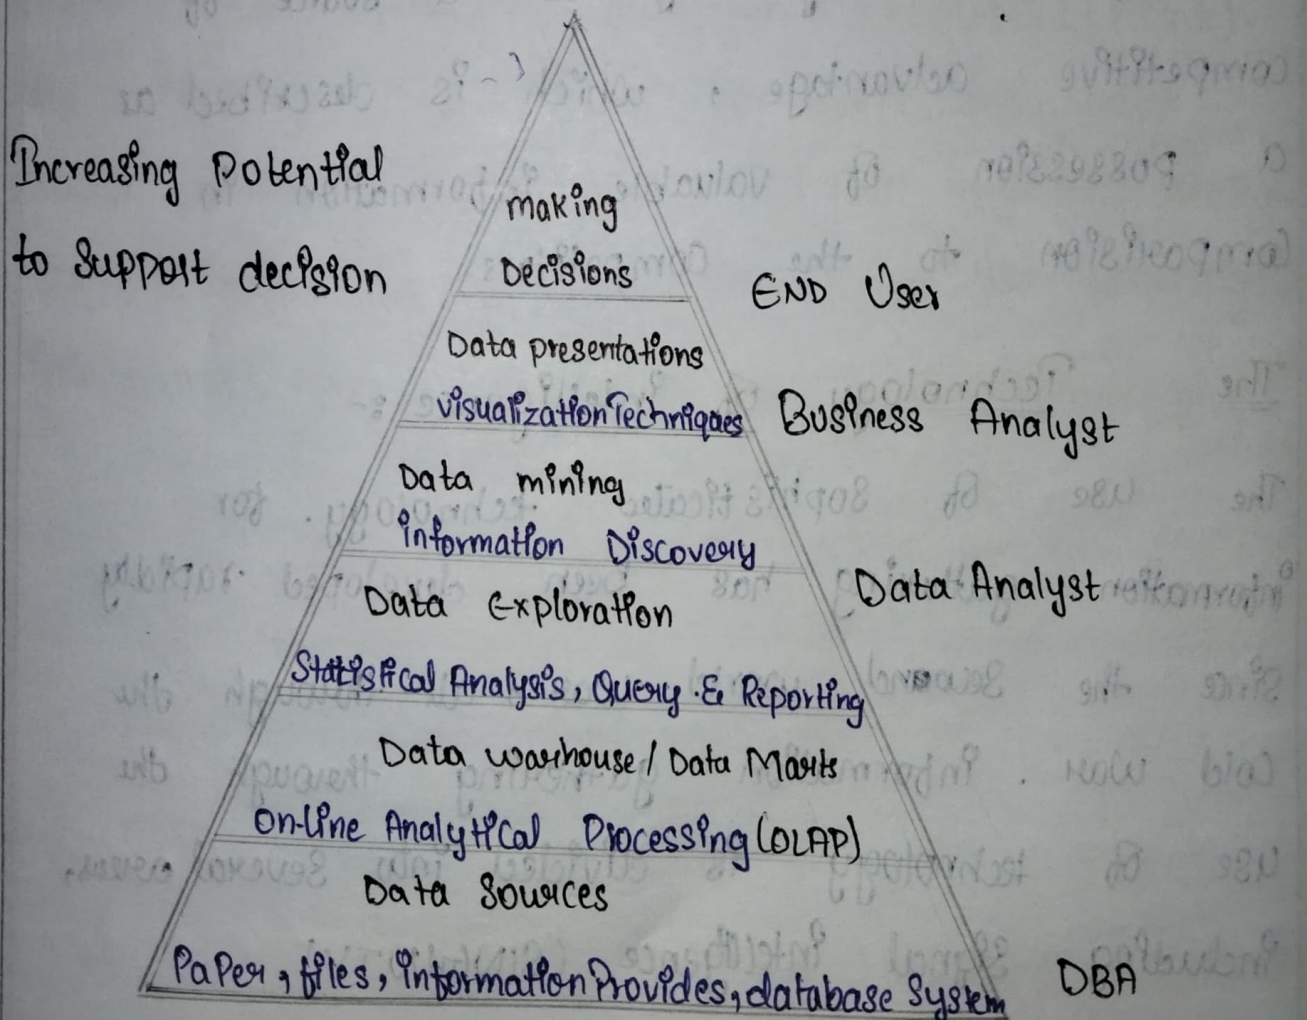 Increasing Potential
to Support decision
making
Decisions
END User
Data presentations
visualization Techniques
Business Analyst
Data mining
information Discovery
Data Analyst
Data Exploration
Statistical Analysis, Query & Reporting
Data warhouse / Data Marts
On-line Analytical Processing (OLAP)
Data Sources
Paper, files, information Provides, database System
DBA